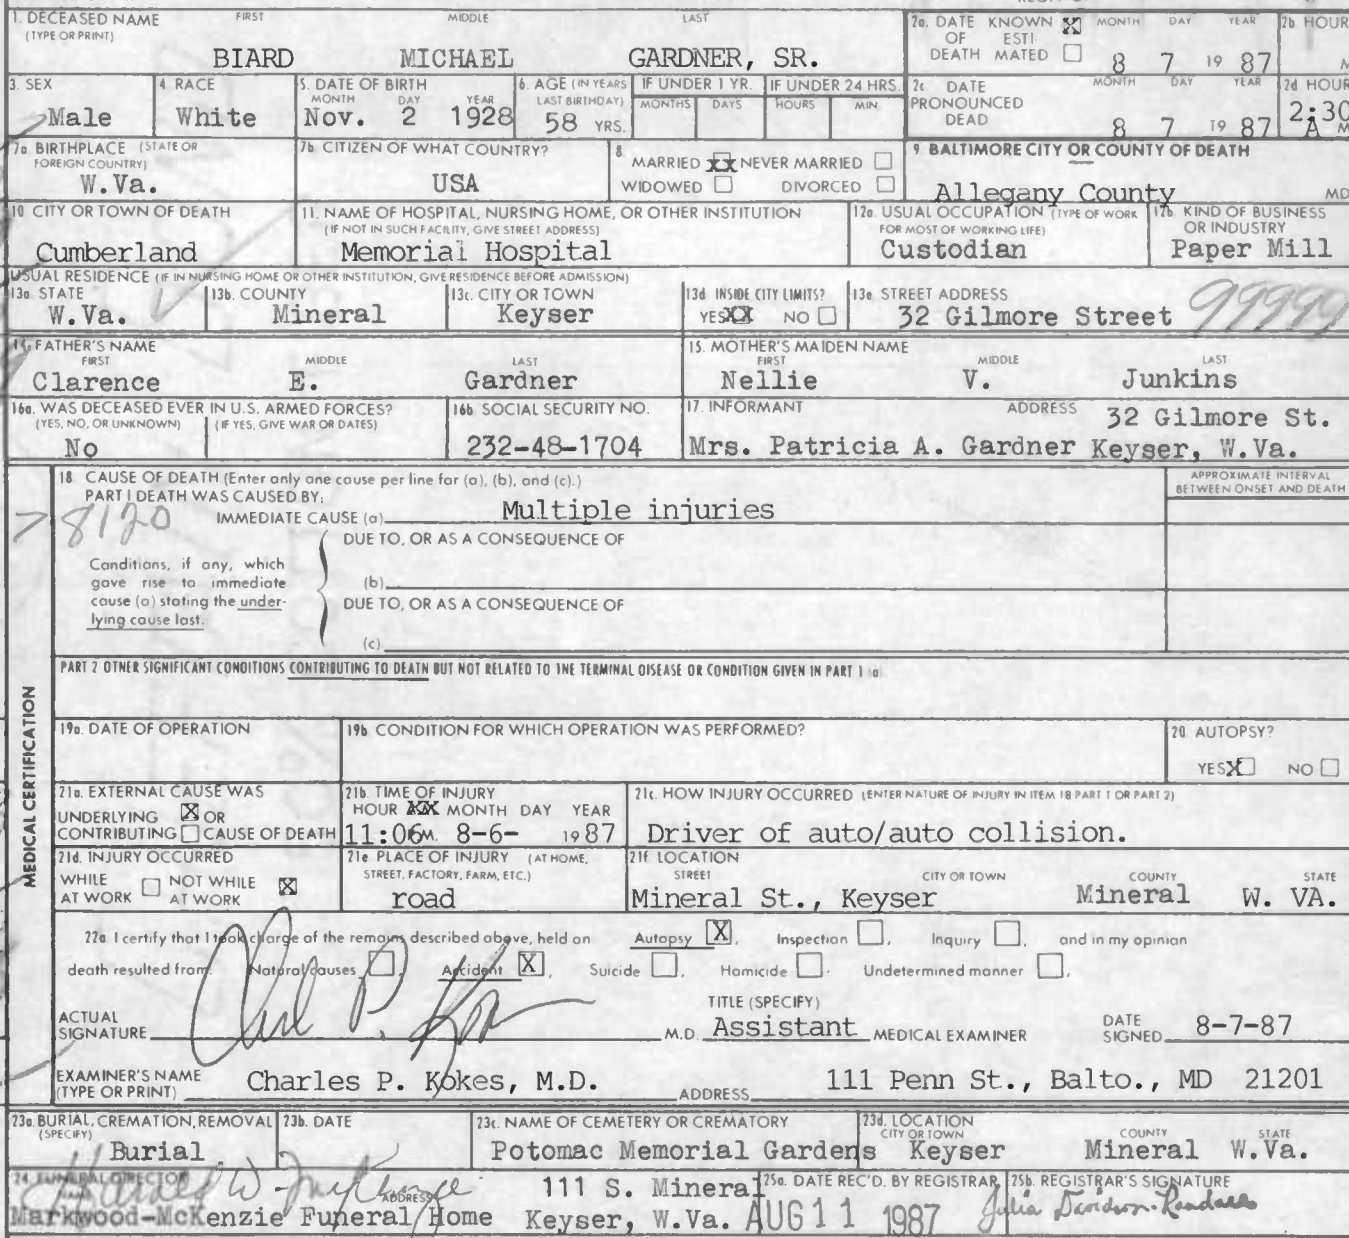 1. DECEASED NAME FIRST MIDDLE LAST
(TYPE OR PRINT)
BIARD MICHAEL GARDNER, SR.
2a. DATE KNOWN X MONTH DAY YEAR
OF ESTI-
DEATH MATED 8 7 19 87
2b HOUR
M
3. SEX
Male
4 RACE
White
5. DATE OF BIRTH
MONTH DAY YEAR
Nov. 2 1928
6. AGE (IN YEARS
LAST BIRTHDAY)
58 YRS.
IF UNDER 1 YR.
MONTHS DAYS
IF UNDER 24 HRS.
HOURS MIN.
2c DATE MONTH DAY YEAR
PRONOUNCED
DEAD 8 7 19 87
2d HOUR
2:30
A M
7a BIRTHPLACE (STATE OR
FOREIGN COUNTRY)
W.Va.
7b CITIZEN OF WHAT COUNTRY?
USA
8
MARRIED XX NEVER MARRIED
WIDOWED DIVORCED
9 BALTIMORE CITY OR COUNTY OF DEATH
Allegany County MD
10 CITY OR TOWN OF DEATH
Cumberland
11. NAME OF HOSPITAL, NURSING HOME, OR OTHER INSTITUTION
(IF NOT IN SUCH FACILITY, GIVE STREET ADDRESS)
Memorial Hospital
12a. USUAL OCCUPATION (TYPE OF WORK
FOR MOST OF WORKING LIFE)
Custodian
12b. KIND OF BUSINESS
OR INDUSTRY
Paper Mill
USUAL RESIDENCE (IF IN NURSING HOME OR OTHER INSTITUTION, GIVE RESIDENCE BEFORE ADMISSION)
13a STATE
W.Va.
13b. COUNTY
Mineral
13c. CITY OR TOWN
Keyser
13d INSIDE CITY LIMITS?
YES XX NO
13e STREET ADDRESS
32 Gilmore Street 99999
14. FATHER'S NAME
FIRST MIDDLE LAST
Clarence E. Gardner
15. MOTHER'S MAIDEN NAME
FIRST MIDDLE LAST
Nellie V. Junkins
16a. WAS DECEASED EVER IN U.S. ARMED FORCES?
(YES, NO, OR UNKNOWN) (IF YES, GIVE WAR OR DATES)
No
16b SOCIAL SECURITY NO.
232-48-1704
17. INFORMANT ADDRESS 32 Gilmore St.
Mrs. Patricia A. Gardner Keyser, W.Va.
18 CAUSE OF DEATH (Enter only one cause per line for (a), (b), and (c).)
PART I DEATH WAS CAUSED BY:
APPROXIMATE INTERVAL
BETWEEN ONSET AND DEATH
8120
IMMEDIATE CAUSE (a) Multiple injuries
DUE TO, OR AS A CONSEQUENCE OF
Conditions, if any, which
gave rise to immediate
cause (a) stating the under-
lying cause last.
(b)
DUE TO, OR AS A CONSEQUENCE OF
(c)
PART 2 OTHER SIGNIFICANT CONDITIONS CONTRIBUTING TO DEATH BUT NOT RELATED TO THE TERMINAL DISEASE OR CONDITION GIVEN IN PART 1 (a)
MEDICAL CERTIFICATION
19a. DATE OF OPERATION
19b CONDITION FOR WHICH OPERATION WAS PERFORMED?
20 AUTOPSY?
YES X NO
21a. EXTERNAL CAUSE WAS
UNDERLYING X OR
CONTRIBUTING CAUSE OF DEATH
21b. TIME OF INJURY
HOUR XX MONTH DAY YEAR
11:06 M. 8-6- 1987
21c. HOW INJURY OCCURRED (ENTER NATURE OF INJURY IN ITEM 18 PART 1 OR PART 2)
Driver of auto/auto collision.
21d. INJURY OCCURRED
WHILE NOT WHILE X
AT WORK AT WORK
21e PLACE OF INJURY (AT HOME,
STREET, FACTORY, FARM, ETC.)
road
21f. LOCATION
STREET CITY OR TOWN COUNTY STATE
Mineral St., Keyser Mineral W. VA.
22a I certify that I took charge of the remains described above, held an Autopsy X, Inspection , Inquiry , and in my opinion
death resulted from: Natural causes , Accident X, Suicide , Homicide , Undetermined manner ,
ACTUAL
SIGNATURE Charles P. Kokes
M.D.
TITLE (SPECIFY)
Assistant MEDICAL EXAMINER
DATE
SIGNED 8-7-87
EXAMINER'S NAME
(TYPE OR PRINT) Charles P. Kokes, M.D. ADDRESS 111 Penn St., Balto., MD 21201
23a. BURIAL, CREMATION, REMOVAL
(SPECIFY)
Burial
23b. DATE
23c. NAME OF CEMETERY OR CREMATORY
Potomac Memorial Gardens
23d. LOCATION
CITY OR TOWN COUNTY STATE
Keyser Mineral W.Va.
24 FUNERAL DIRECTOR
NAME ADDRESS 111 S. Mineral
Markwood-McKenzie Funeral Home Keyser, W.Va.
25a. DATE REC'D. BY REGISTRAR
AUG 11 1987
25b. REGISTRAR'S SIGNATURE
Julia Davidson-Randall